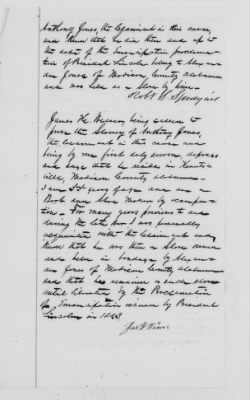 Anthony Jones, the Claimant in this cause,
and knew that he did then and up to
the date of the Emancipation proclama-
tion of President Lincoln belong to Alexan-
der Jones of Madison County Alabama
and was held as a Slave by him.
Robt C
James H. being called to
prove the Slavery of Anthony Jones,
the Claimant in this cause and
being by me first duly sworn, deposes
and says that he resides in Hunts-
ville, Madison County Alabama
I am years of age and am a
Brick and Stone Mason by occupa-
tion. For many years previous to and
during the late war I was personally
acquainted with the Claimant and
know that he was then a Slave owned
and held in bondage by Alexan-
der Jones of Madison County Alabama
and that he remained a such
until liberated by the Proclamation
of Emancipation issued by President
Lincoln in 1863
Jas H